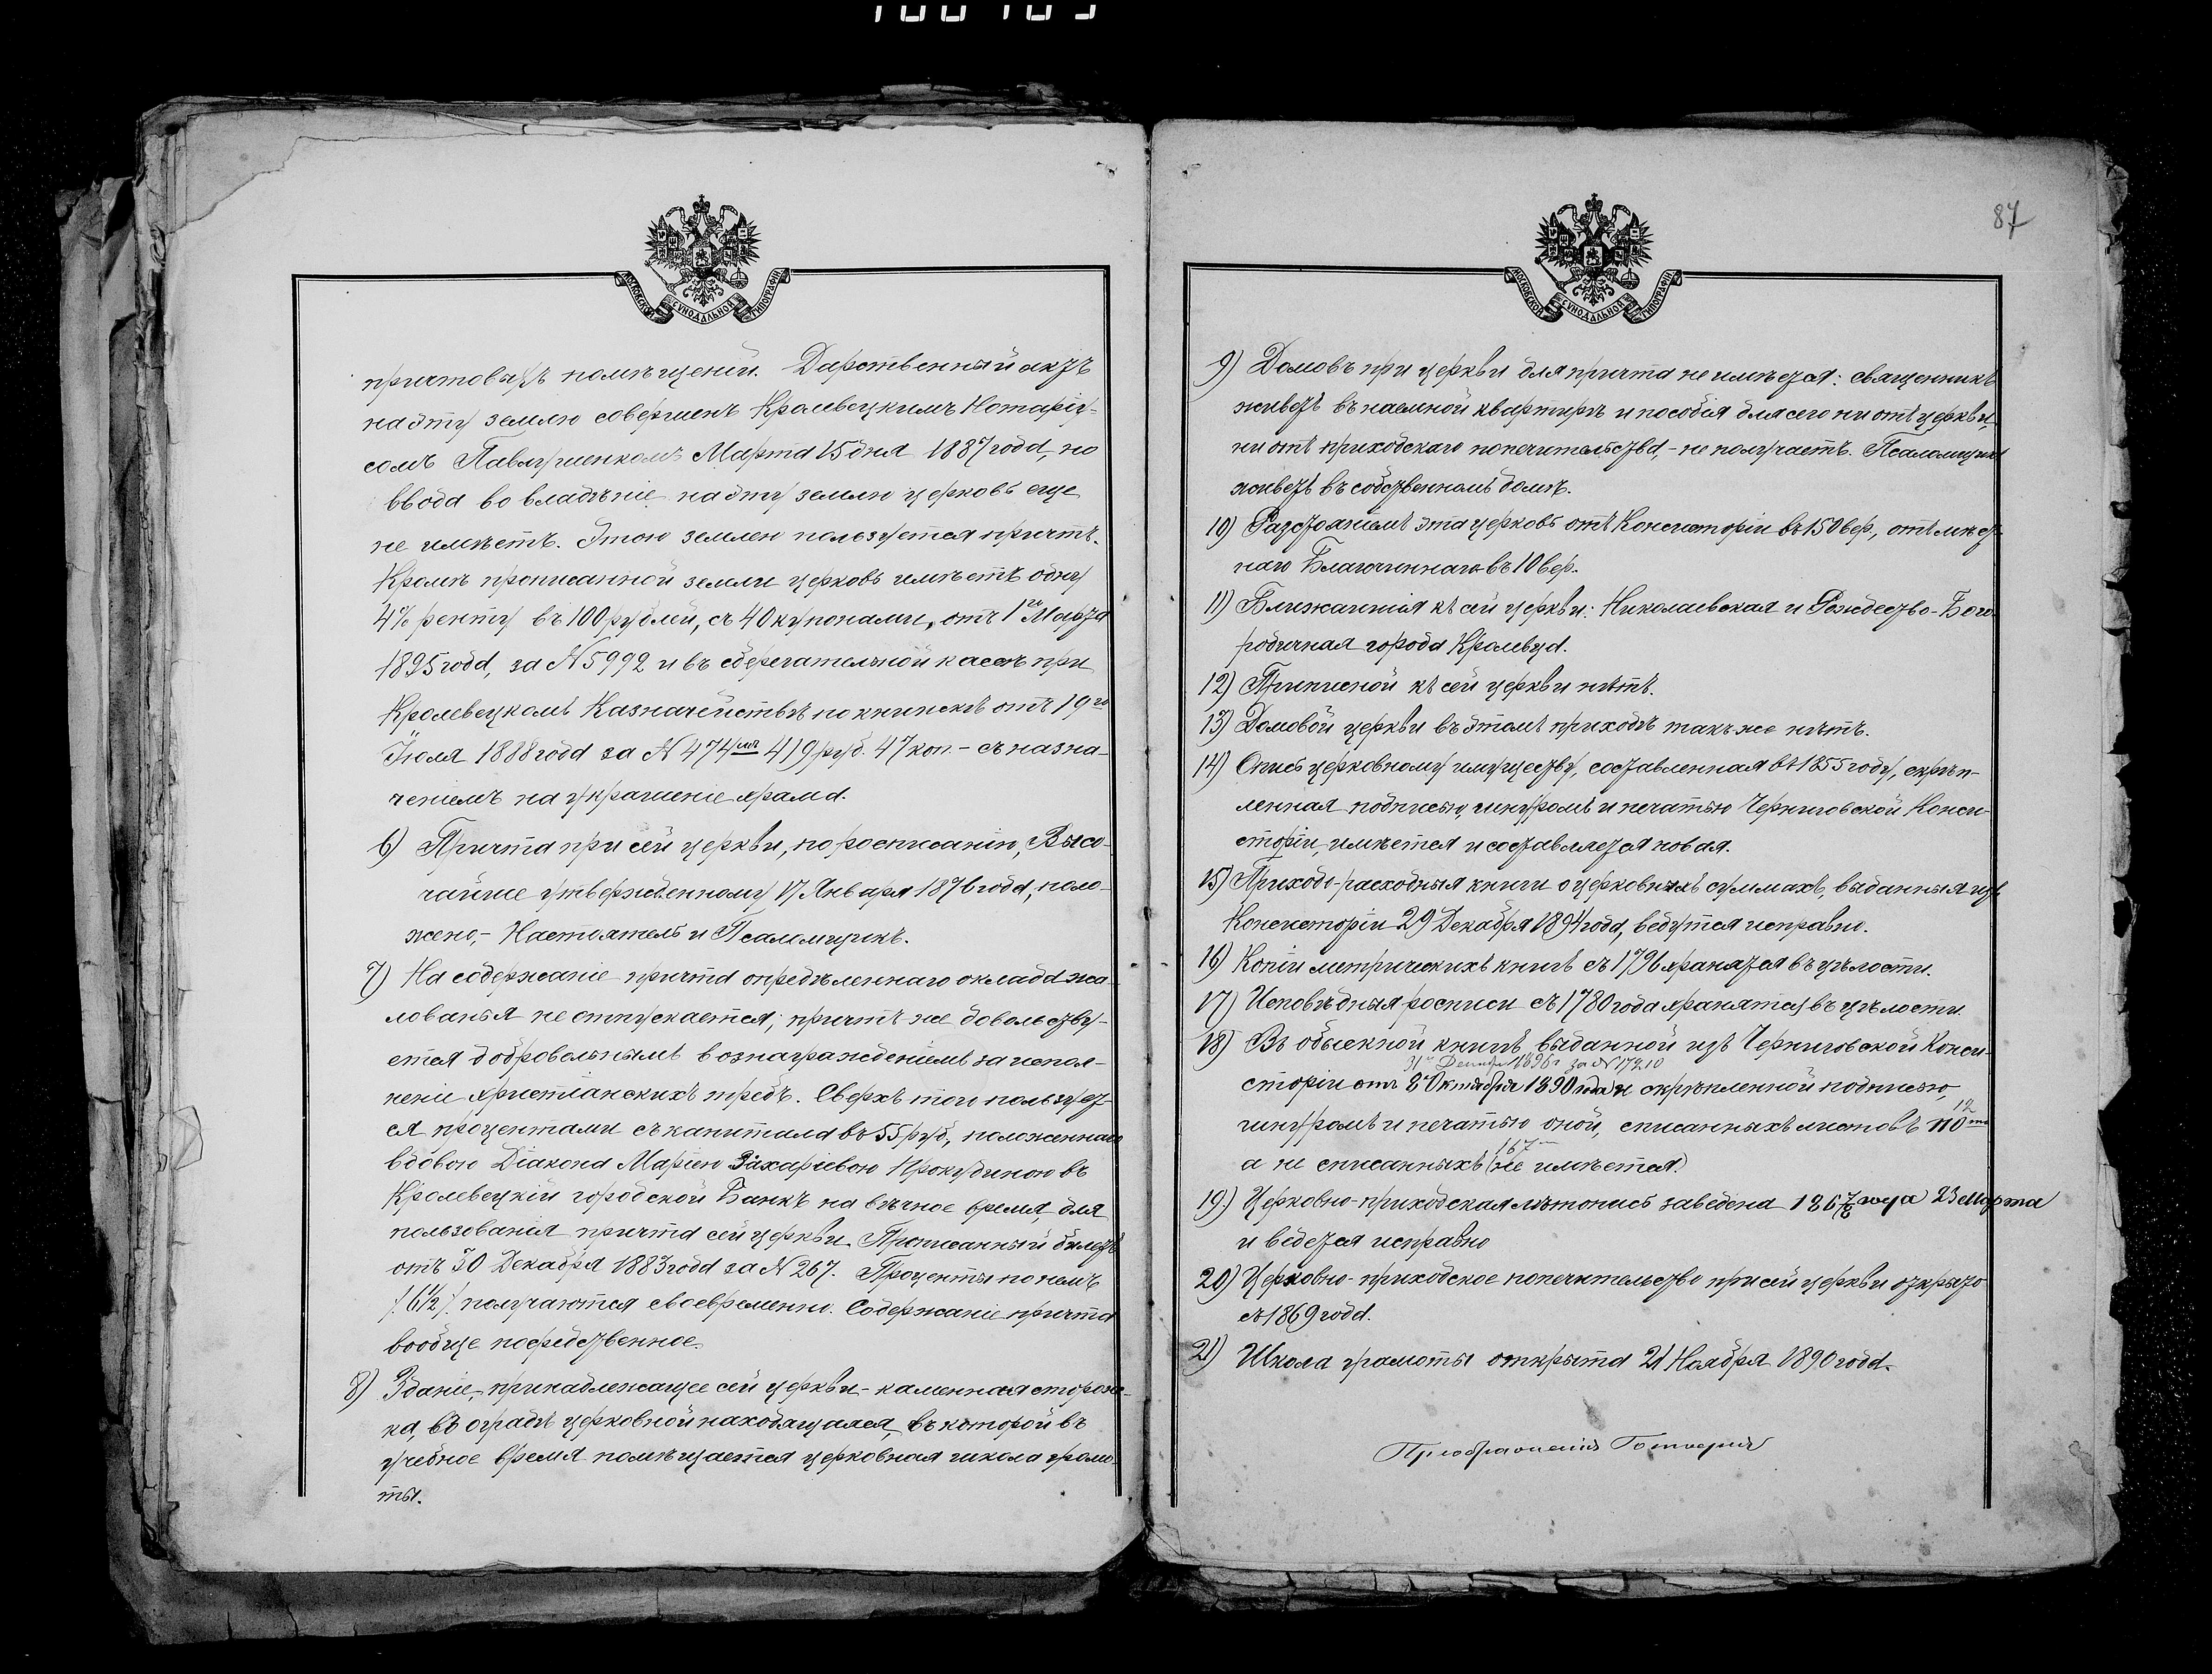 87
МОСКОВСКОЙ СѴНОДАЛЬНОЙ ТИПОГРАФІИ
причтовыхъ помѣщеній. Дарственный актъ
на эту землю совершенъ Кролевецкимъ Нотаріу-
сомъ Павлушенкомъ Марта 15 дня 1887 года, но
ввода во владѣніе на эту землю церковь еще
не имѣетъ. Этою землею пользуется причтъ.
Кромѣ прописанной земли церковь имѣетъ одну
4% ренту въ 100 рублей, съ 40 купонами, отъ 1го Марта
1895 года, за N 5992 и въ сберегательной кассѣ при
Кролевецкомъ Казначействѣ по книжкѣ отъ 19го
Іюля 1888 года за N 474мъ 419 руб. 47 коп. - съ назна-
ченіемъ на украшеніе храма.
6) Причта при сей церкви, по росписанію, Высо-
чайше утвержденному 17 Января 1876 года, поло-
жено, - Настоятель и Псаломщикъ.
7) На содержаніе причта опредѣленнаго оклада жа-
лованья не отпускается; причтъ же довольству-
ется добровольнымъ вознагражденіемъ за испол-
неніе христіанскихъ требъ. Сверхъ того пользует-
ся процентами съ капитала въ 55 руб., положеннаго
вдовою Діакона Маріею Захаріевою Прокудиною въ
Кролевецкій городской Банкъ на вѣчное время, для
пользованія причта сей церкви. Прописанный билетъ
отъ 30 Декабря 1883 года за N 267. Проценты по немъ
/. 6½ /. получаются своевременно. Содержаніе причта
вообще посредственное.
8) Зданіе, - принадлежащее сей церкви - каменная сторож-
ка, въ оградѣ церковной находящаяся, въ которой въ
учебное время помѣщается церковная школа грамо-
ты.
МОСКОВСКОЙ СѴНОДАЛЬНОЙ ТИПОГРАФІИ
9) Домовъ при церкви для причта не имѣется: священникъ
живетъ въ наемной квартирѣ и пособія для сего ни отъ церкви,
ни отъ приходскаго попечительства, - не получаетъ. Псаломщикъ
живетъ въ собственномъ домѣ.
10) Разстояніемъ эта церковь отъ Консисторіи въ 150 вер., отъ мѣст-
наго Благочиннаго въ 10 вер.
11) Ближайшія къ сей церкви: Николаевская и Рождество-Бого-
родичная города Кролевца.
12) Приписной къ сей церкви нѣтъ.
13) Домовой церкви въ этомъ приходѣ такъ же нѣтъ.
14) Опись церковному имуществу, составленная въ 1855 году, скрѣп-
ленная подписью, шнуромъ и печатью Черниговской Конси-
сторіи, имѣется и составляется новая.
15) Приходо-расходныя книги о церковныхъ суммахъ, выданныя изъ
Консисторіи 29 Декабря 1894 года, ведутся исправно.
16) Копіи метрическихъ книгъ съ 1796 хранятся въ цѣлости.
17) Исповѣдныя росписи съ 1780 года хранятся въ цѣлости.
18) Въ обыскной книгѣ, выданной изъ Черниговской Конси-
31го Декабря 1896 г. за N 17210
сторіи отъ 8 Октября 1890 года и скрѣпленной подписью,
12
шнуромъ и печатью оной, списанныхъ листовъ 110
167
а не списанныхъ (не имѣется.)
19.) Церковно-приходская лѣтопись заведена 1867 года 23 Марта
и ведется исправно
20) Церковно-приходское попечительство при сей церкви открыто
съ 1869 года.
21) Школа грамоты открыта 21 Ноября 1890 года.